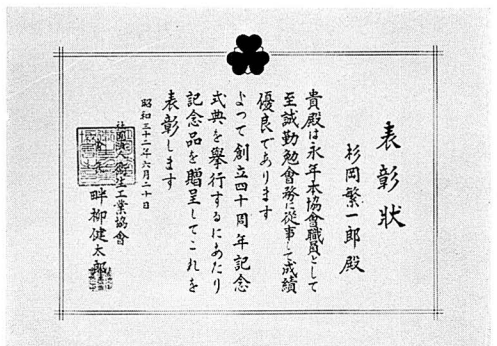 表彰状
杉岡繁一郎殿
貴殿は永年本協會職員として
至誠勤勉會務に従事して成績
優良であります
よつて創立四十周年記念
式典を擧行するにあたり
記念品を贈呈してこれを
表彰します
昭和三十二年六月二十日
社団法人衛生工業協會
会長 畔柳健太郎